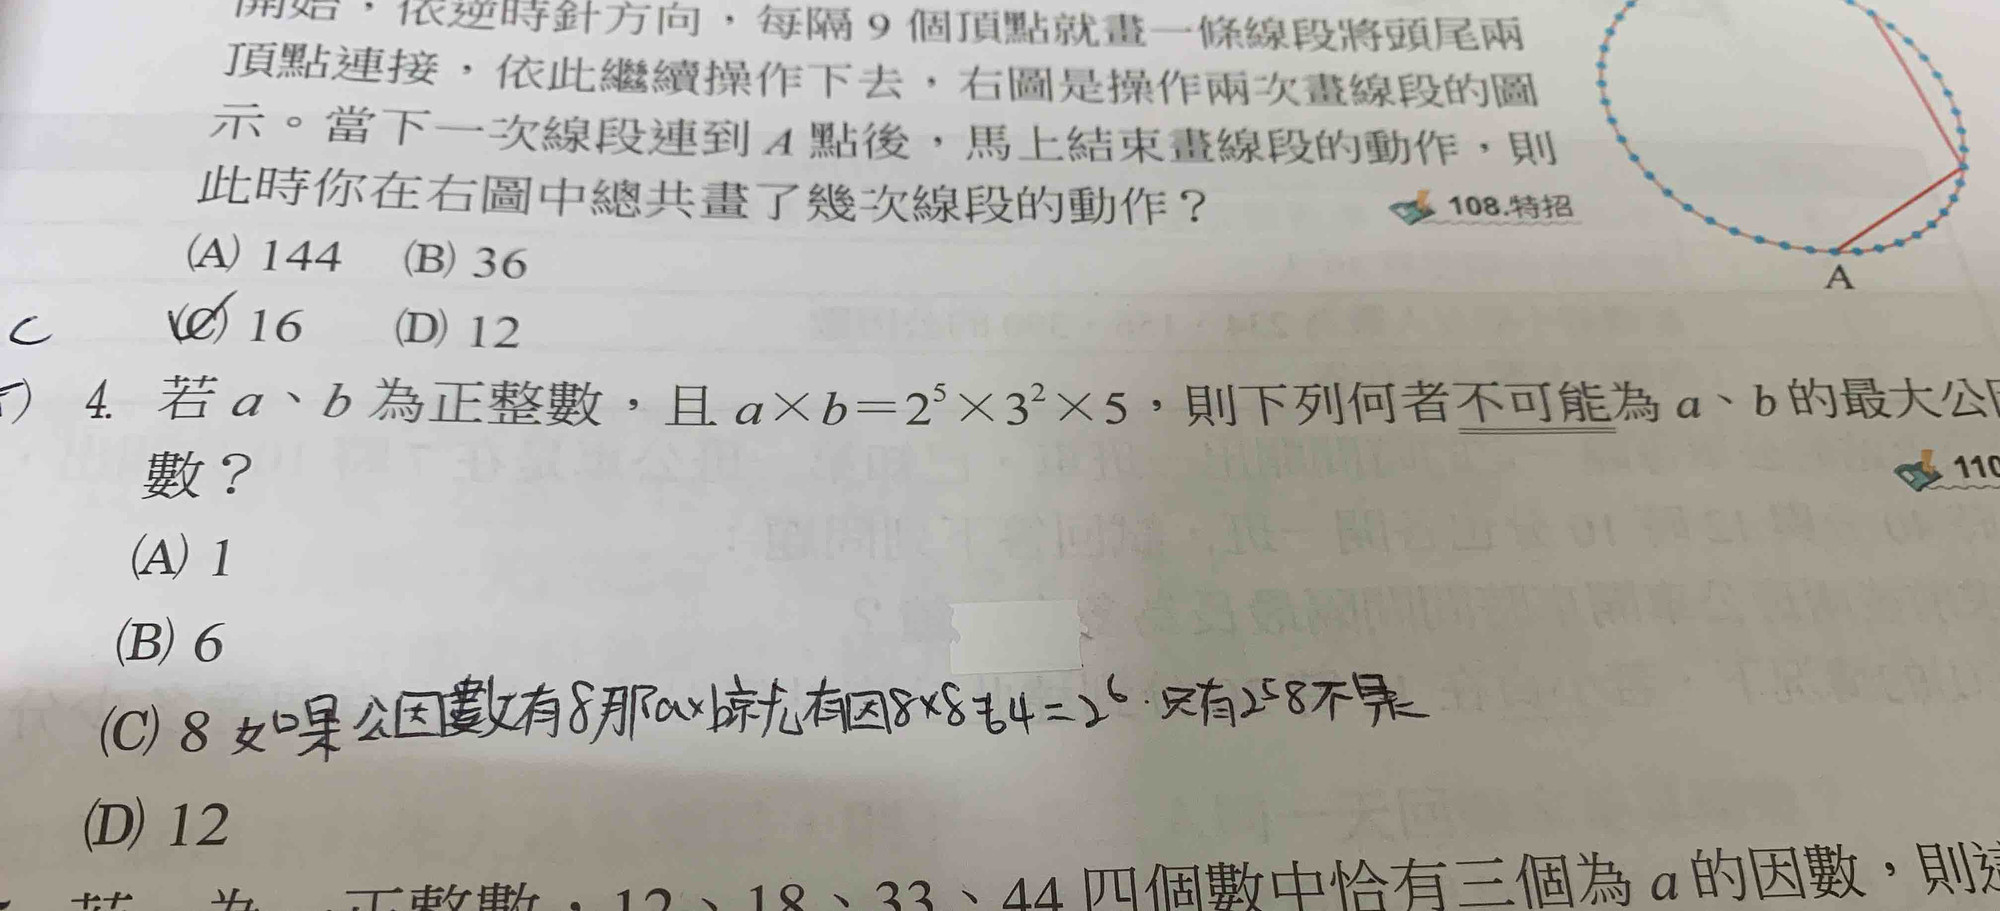 開始，依逆時針方向，每隔 9 個頂點就畫一條線段將頭尾兩
頂點連接，依此繼續操作下去，右圖是操作兩次畫線段的圖
示。當下一次線段連到 A 點後，馬上結束畫線段的動作，則
此時你在右圖中總共畫了幾次線段的動作？
108.特招
(A) 144 (B) 36
(C) 16 (D) 12
C
A
4. 若 a、b 為正整數，且 a×b＝2⁵×3²×5，則下列何者不可能為 a、b 的最大公因
數？
110
(A) 1
(B) 6
(C) 8 如果公因數有8那a×b就有因8×8 64=2⁶.只有2⁵8不是
(D) 12
正整數，12、18、33、44 四個數中恰有三個為 a 的因數，則這